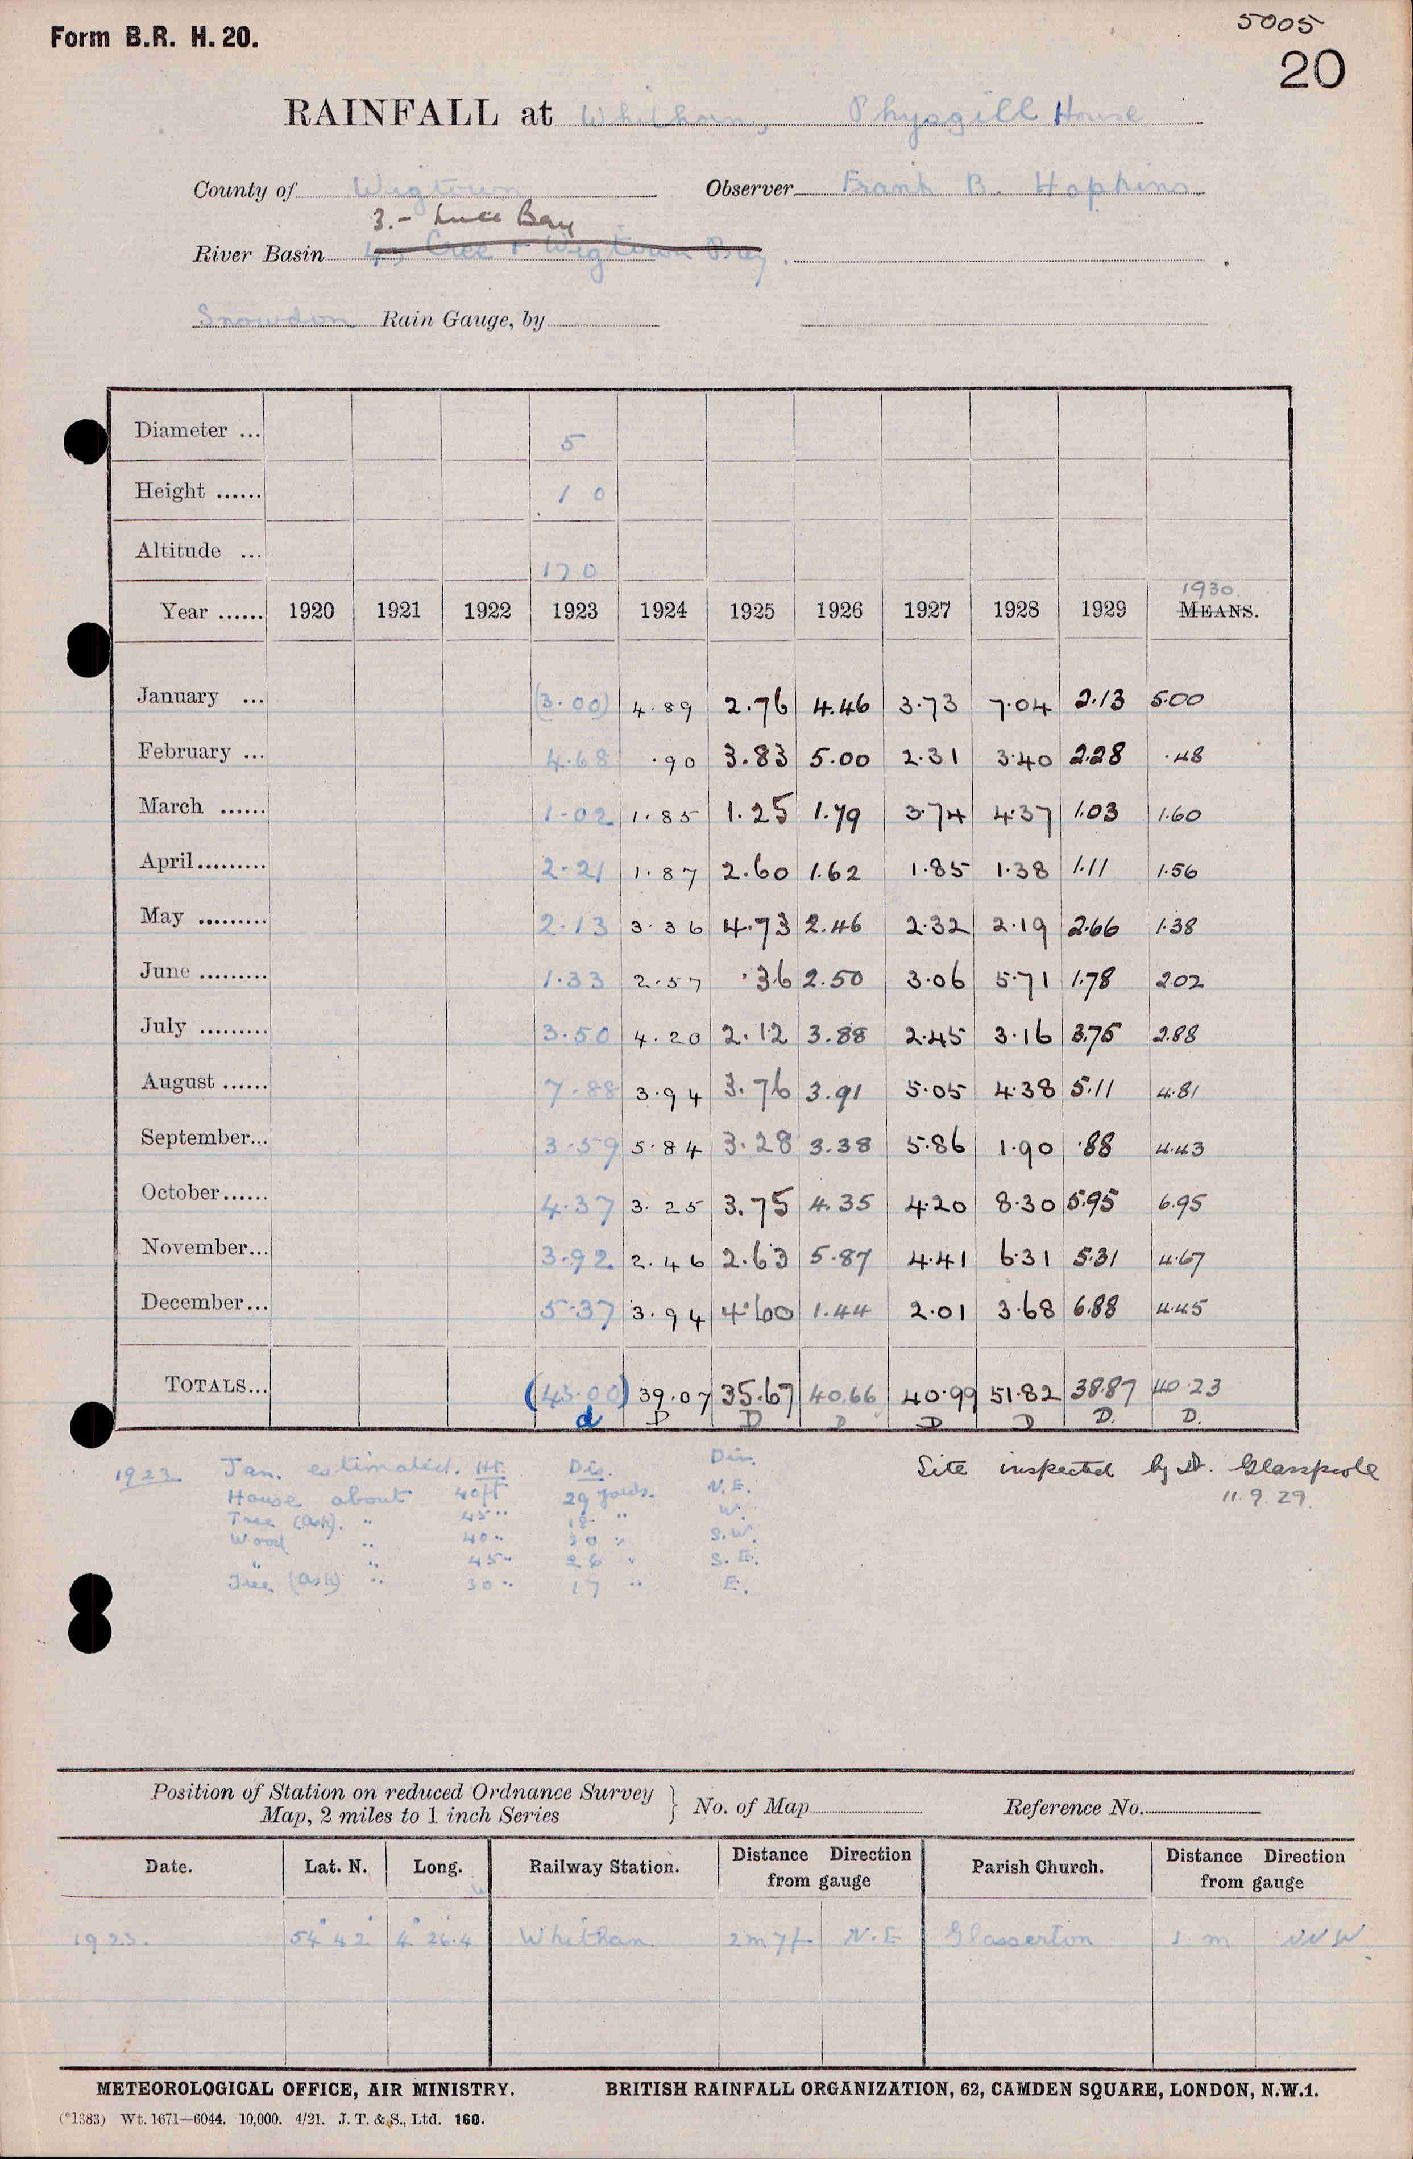 Form B.R. H. 20.
5005
20
RAINFALL at Whithorn, Physgill House
County of Wigtown Observer Frank B. Hopkins
3.- Luce Bay
River Basin 4, Cree + Wigtown Bay.
Snowdon Rain Gauge, by
Diameter ... 5
Height ...... 1 0
Altitude ... 170
1930.
Year ...... 1920 1921 1922 1923 1924 1925 1926 1927 1928 1929 MEANS.
January ... (3.00) 4.89 2.76 4.46 3.73 7.04 2.13 5.00
February ... 4.68 .90 3.83 5.00 2.31 3.40 2.28 .48
March ...... 1.02 1.85 1.25 1.79 3.74 4.37 1.03 1.60
April......... 2.21 1.87 2.60 1.62 1.85 1.38 1.11 1.56
May ......... 2.13 3.36 4.73 2.46 2.32 2.19 2.66 1.38
June ......... 1.33 2.57 .36 2.50 3.06 5.71 1.78 2.02
July ......... 3.50 4.20 2.12 3.88 2.45 3.16 3.75 2.88
August ...... 7.88 3.94 3.76 3.91 5.05 4.38 5.11 4.81
September... 3.59 5.84 3.28 3.38 5.86 1.90 .88 4.43
October...... 4.37 3.25 3.75 4.35 4.20 8.30 5.95 6.95
November... 3.92 2.46 2.63 5.87 4.41 6.31 5.31 4.67
December... 5.37 3.94 4.60 1.44 2.01 3.68 6.88 4.45
TOTALS... (43.00) 39.07 35.67 40.66 40.99 51.82 38.87 40.23
d D D D D D D. D.
1923 Jan. estimated. Ht. Dis. Dir. Site inspected by Dr. Glasspoole
House about 40ft 29 yards. N.E. 11.9.29.
Tree (Ash). " 45 " 18 " W.
Wood " 40 " 30 " S.W.
" " 45 " 26 " S.E.
Tree (Ash) " 30 " 17 " E.
Position of Station on reduced Ordnance Survey
Map, 2 miles to 1 inch Series } No. of Map Reference No.
Date. Lat. N. Long. Railway Station. Distance Direction from gauge Parish Church. Distance Direction from gauge
W
1923. 54° 42' 4° 26.4 Whithorn 2m 7f. N.E Glasserton 1 m NW
METEOROLOGICAL OFFICE, AIR MINISTRY. BRITISH RAINFALL ORGANIZATION, 62, CAMDEN SQUARE, LONDON, N.W.1.
(*1383) Wt. 1671—6044. 10,000. 4/21. J. T. & S., Ltd. 160.